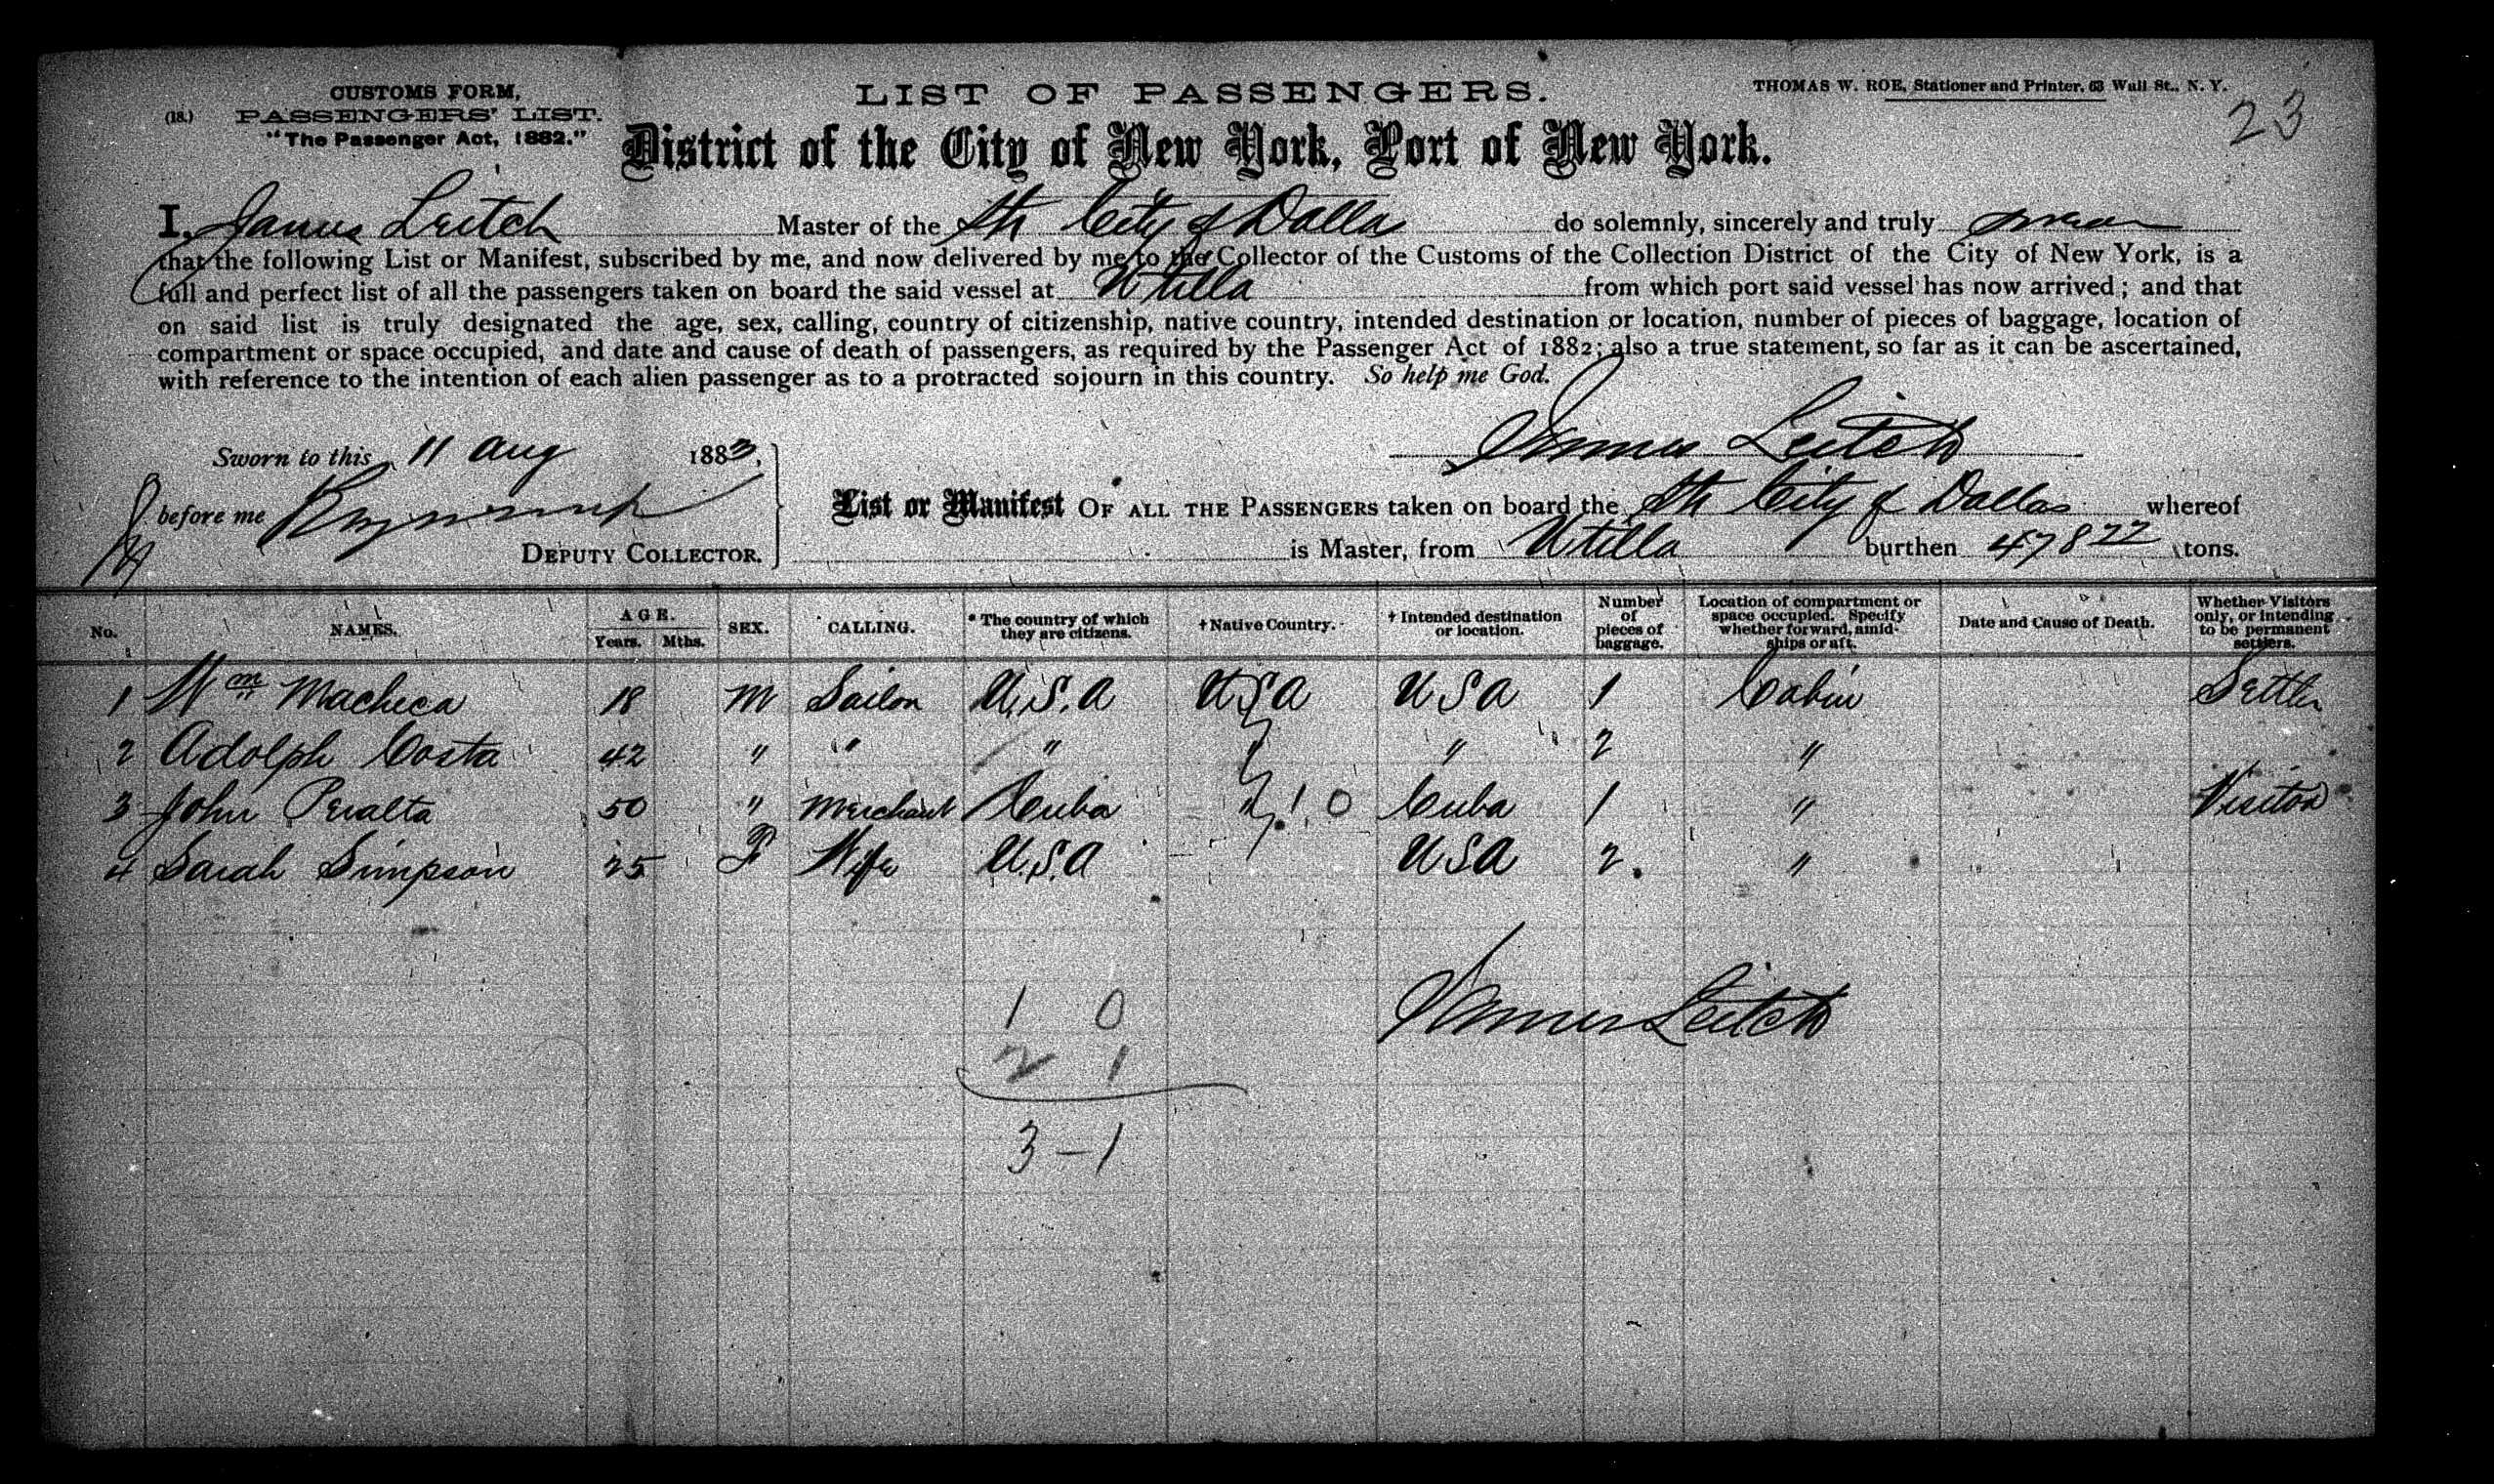 CUSTOMS FORM,
(18.) PASSENGERS' LIST.
"The Passenger Act, 1882."
LIST OF PASSENGERS.
THOMAS W. ROE, Stationer and Printer, 63 Wall St., N. Y.
23
District of the City of New York, Port of New York.
I, James Leitch Master of the Str City of Dalla do solemnly, sincerely and truly swear
that the following List or Manifest, subscribed by me, and now delivered by me to the Collector of the Customs of the Collection District of the City of New York, is a
full and perfect list of all the passengers taken on board the said vessel at Utilla from which port said vessel has now arrived; and that
on said list is truly designated the age, sex, calling, country of citizenship, native country, intended destination or location, number of pieces of baggage, location of
compartment or space occupied, and date and cause of death of passengers, as required by the Passenger Act of 1882; also a true statement, so far as it can be ascertained,
with reference to the intention of each alien passenger as to a protracted sojourn in this country. So help me God.
James Leitch
Sworn to this 11 Aug 1883,
before me
DEPUTY COLLECTOR.
List or Manifest OF ALL THE PASSENGERS taken on board the Str City of Dallas whereof
is Master, from Utilla burthen 478 22 tons.
No. NAMES. AGE. Years. Mths. SEX. CALLING. * The country of which they are citizens. † Native Country. † Intended destination or location. Number of pieces of baggage. Location of compartment or space occupied. Specify whether forward, amidships or aft. Date and Cause of Death. Whether Visitors only, or intending to be permanent settlers.
1 Wm Macheca 18 M Sailor U.S.A USA USA 1 Cabin Settler
2 Adolph Costa 42 " " " " " 2 "
3 John Peralta 50 " Merchant Cuba " 1 0 Cuba 1 " Visitor
4 Sarah Simpson 25 F Wife U.S.A USA 2 "
1 0
2 1
3 - 1
James Leitch